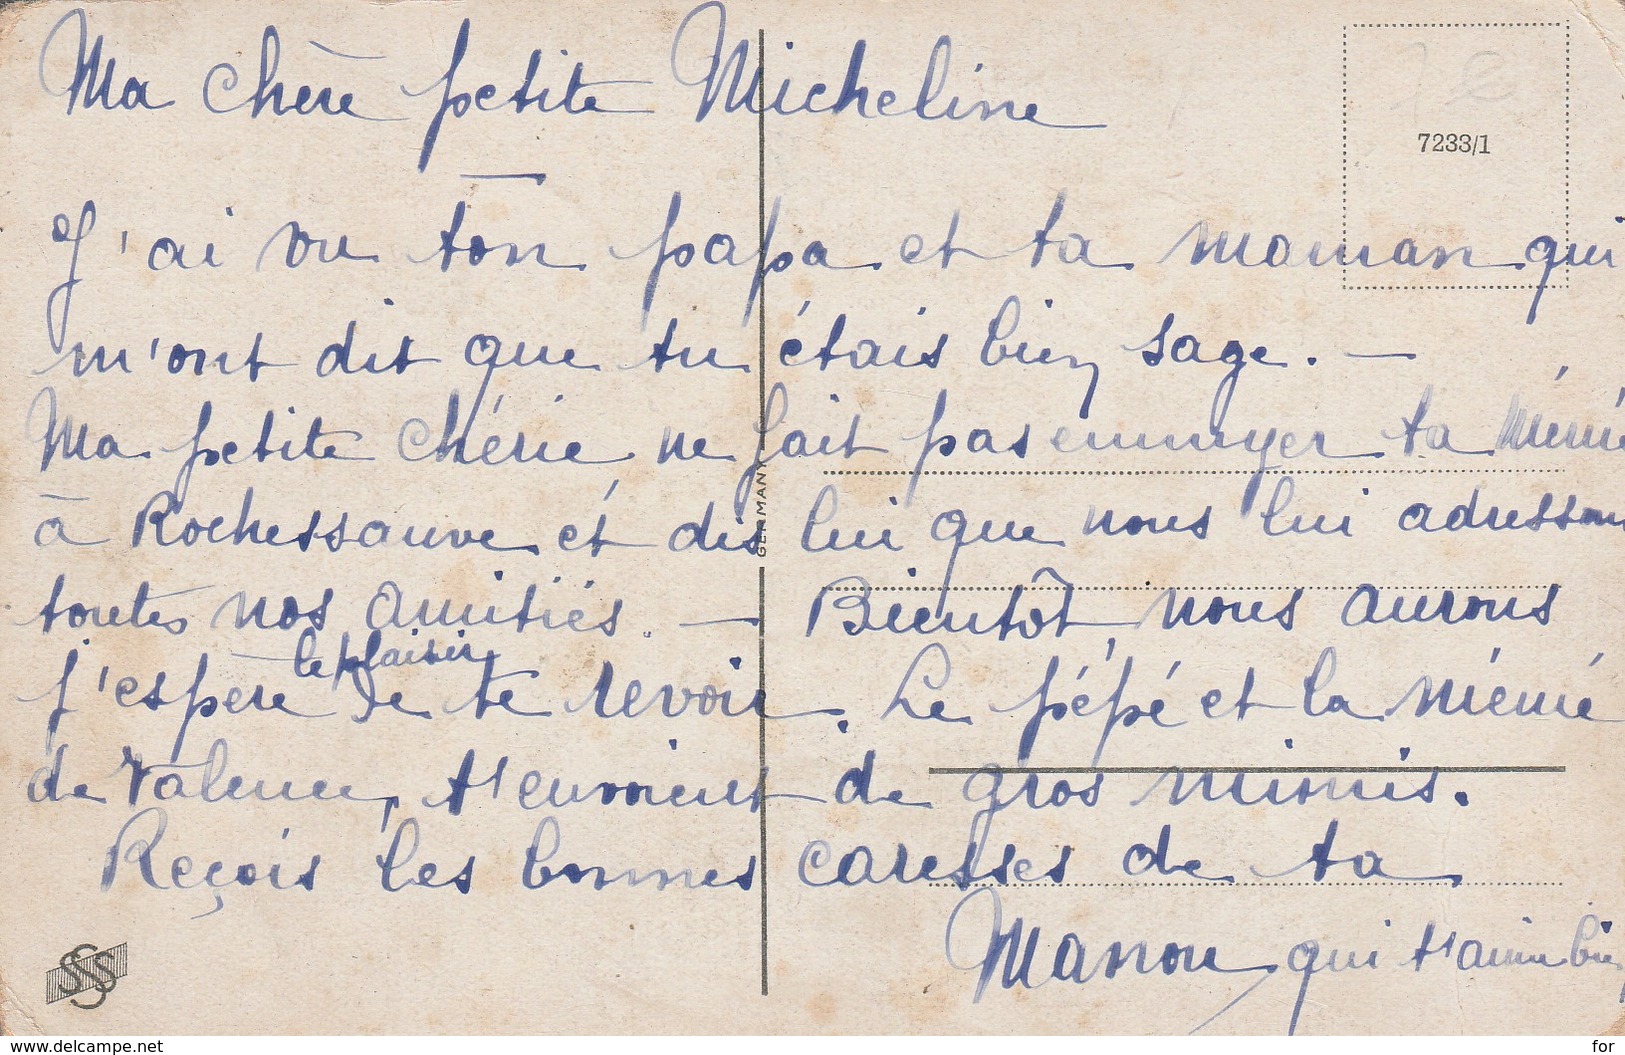 Ma chère petite Micheline
7233/1
J'ai vu ton papa et ta maman qui
m'ont dit que tu étais bien sage. —
Ma petite chérie ne fait pas ennuyer ta Mémé
à Rochessauve et dis lui que nous lui adressons
toutes nos amitiés. — Bientôt nous aurons
le plaisir
j'espère de te revoir. Le pépé et la mémé
de Valence, t'envoient de gros mimis.
Reçois les bonnes caresses de ta
Manou qui t'aime bien
GERMANY
SSS
www.delcampe.net
for